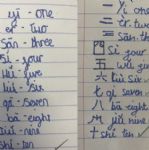 yī - one
èr - two
sān - three
sì - four
wǔ - five
liù - six
qī - seven
bā - eight
jiǔ - nine
shí - ten
一 yī one
二 èr two
三 sān three
四 sì four
五 wǔ five
六 liù six
七 qī seven
八 bā eight
九 jiǔ nine
十 shí ten